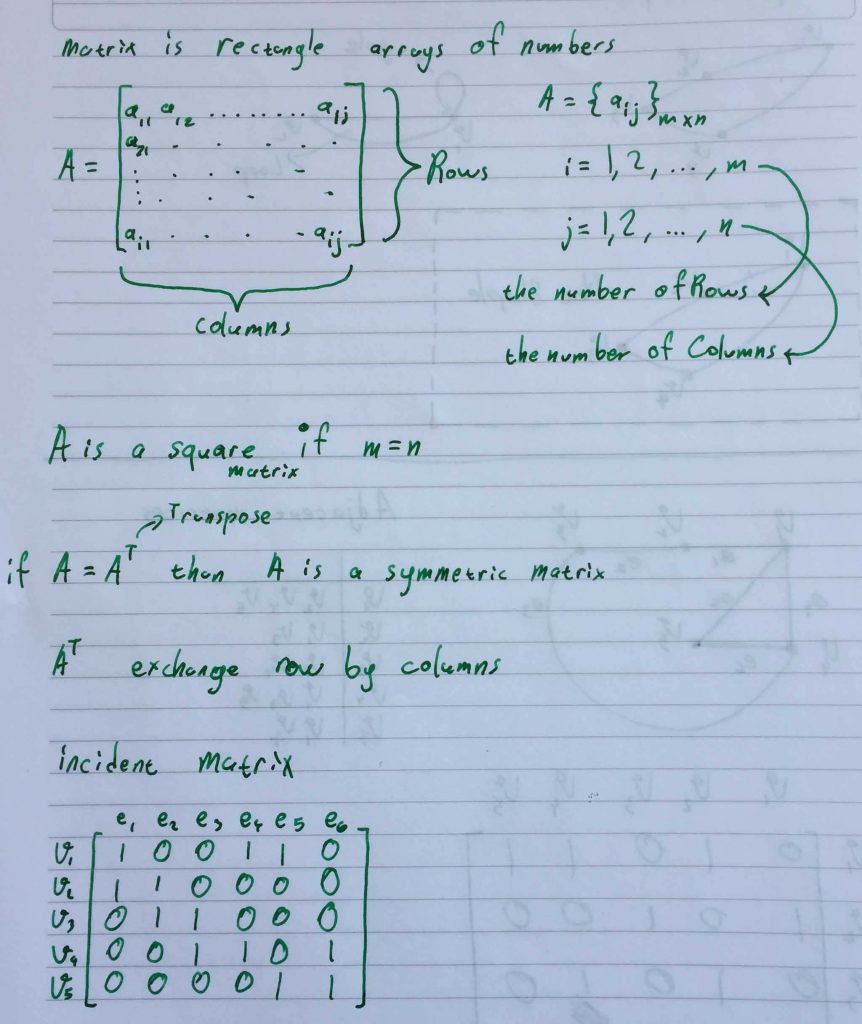 matrix is rectangle arrays of numbers
A = [ a₁₁ a₁₂ ........ a₁ⱼ
a₂₁ . . . . .
: . . . -
: . . - -
aᵢ₁ . . . - aᵢⱼ ] } Rows
columns
A = { aᵢⱼ }ₘₓₙ
i = 1, 2, ..., m
j = 1, 2, ..., n
the number of Rows
the number of Columns
A is a square matrix if m = n
Transpose
if A = Aᵀ than A is a symmetric matrix
Aᵀ exchange row by columns
incident matrix
e₁ e₂ e₃ e₄ e₅ e₆
v₁ 1 0 0 1 1 0
v₂ 1 1 0 0 0 0
v₃ 0 1 1 0 0 0
v₄ 0 0 1 1 0 1
v₅ 0 0 0 0 1 1